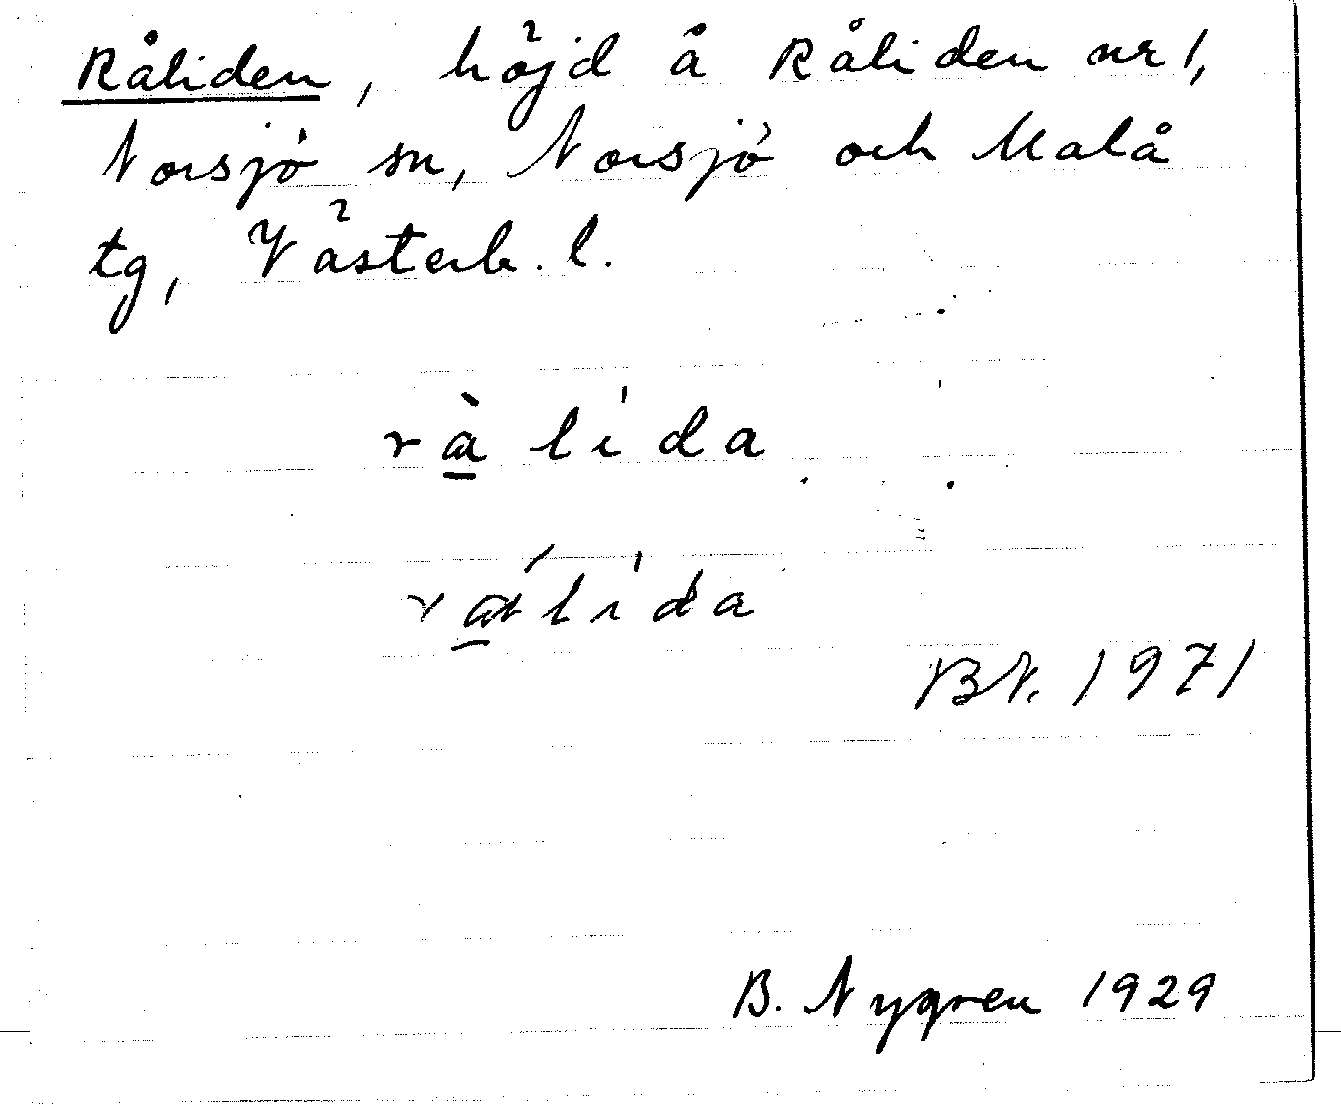 Råliden, höjd å Råliden nr 1,
Norsjö sn, Norsjö och Malå
tg, Västerb. l.
rà̱ lida
rá̱lida
BN. 1971
B. Nygren 1929